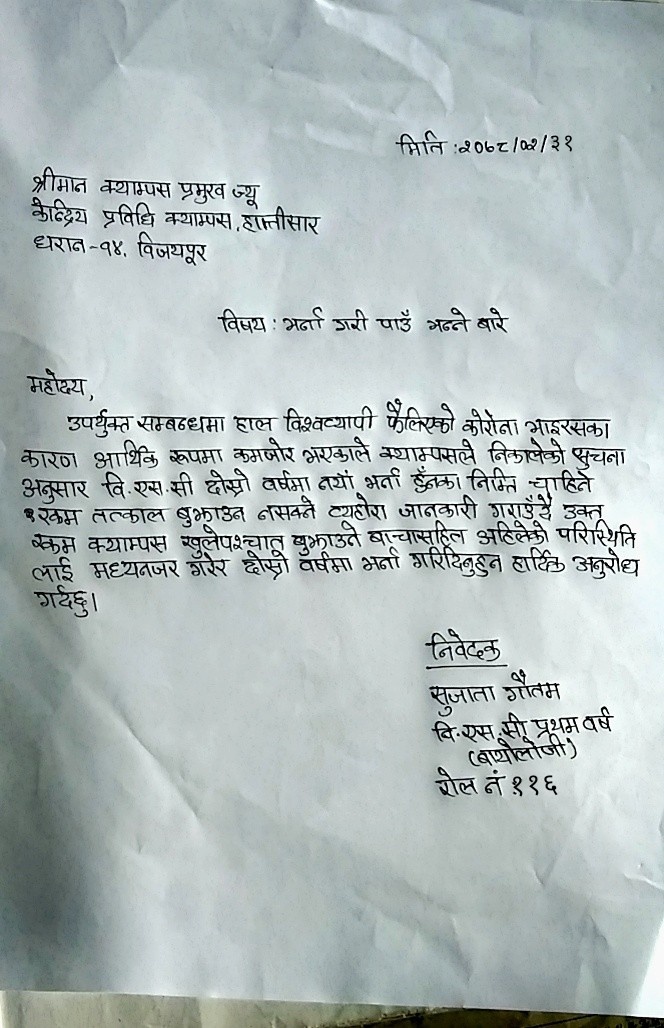 मिति :२०७८/०२/३१
श्रीमान क्याम्पस प्रमुख ज्यू
केन्द्रिय प्रविधि क्याम्पस, हात्तीसार
धरान-१४, विजयपूर
विषय : भर्ना गरी पाउँ भन्ने बारे
महोदय,
उपर्युक्त सम्बन्धमा हाल विश्वव्यापी फैलिएको कोरोना भाइरसका
कारण आर्थिक रूपमा कमजोर भएकाले क्याम्पसले निकालेको सुचना
अनुसार वि.एस.सी दोस्रो वर्षमा नयाँ भर्ना हुँनका निम्ति चाहिने
रकम तत्काल बुझाउन नसक्ने व्यहोरा जानकारी गराउँदै उक्त
रकम क्याम्पस खुलेपश्चात बुझाउने बाचासहित अहिलेको परिस्थिति
लाई मध्यनजर गरेर दोस्रो वर्षमा भर्ना गरिदिनुहुन हार्दिक अनुरोध
गर्दछु।
निवेदक
सुजाता गौतम
वि.एस.सी प्रथम वर्ष
(बायोलोजी)
रोल नं ११६